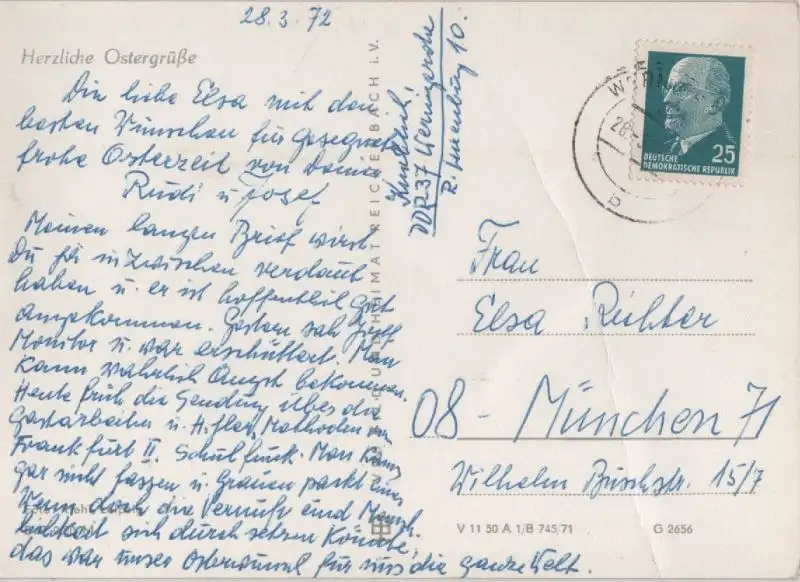 28.3.72
Herzliche Ostergrüße
Dir liebe Elsa mit den
besten Wünschen für gesegnete
frohe Osterzeit von Deinen
Rudi u. Josef
Meinen langen Brief wirst
Du ja inzwischen verdaut
haben u. er ist hoffentlich gut
angekommen. Gestern sah Josef
Monitor u. war erschüttert. Man
kann wahrlich Angst bekommen.
Heute früh die Sendung über die
Gastarbeiter u. Hitler Methoden
Frankfurt II. Schulfunk. Man kann
gar nicht fassen u. Grauen packt einen
Wenn doch die Vernunft und Mensch
lichkeit sich durch setzen könnte,
das war unser Osterwunsch für uns die ganze Welt.
DDR 37 Wernigerode
R. Luxemburg 10.
REICHENBACH i. V.
28.
DEUTSCHE
DEMOKRATISCHE REPUBLIK
25
b
Frau
Elsa Richter
08 - München 71
Wilhelm Buschstr. 15/7
V 11 50 A 1/B 745/71 G 2656